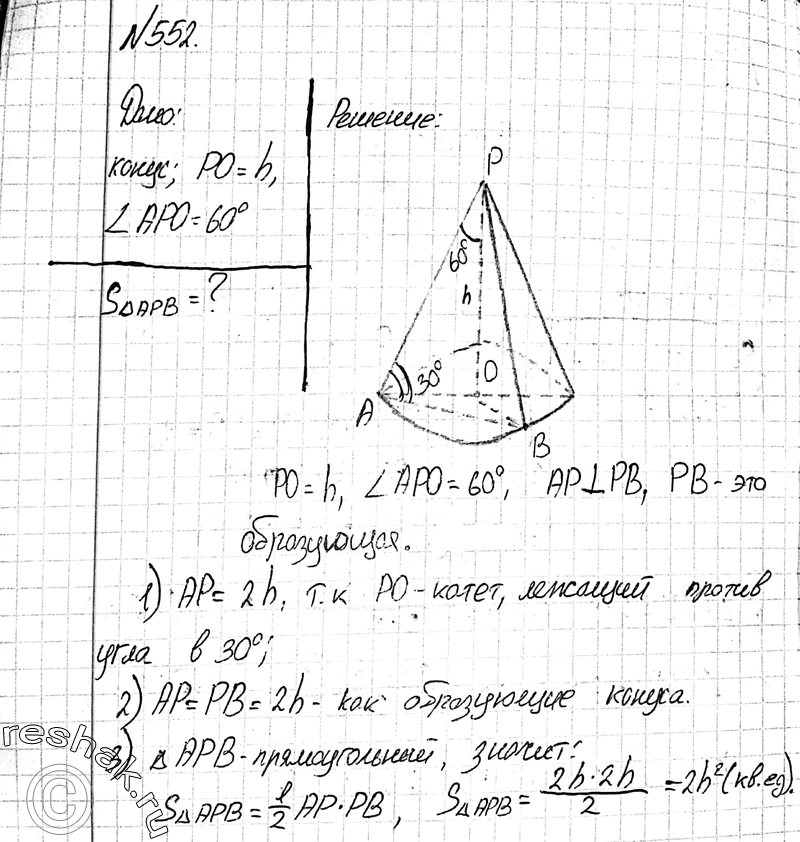 №552.
Дано:
конус; PO = h,
∠APO = 60°
S△APB = ?
Решение:
P
60°
h
30°
O
A
B
PO = h, ∠APO = 60°, AP⊥PB, PB - это
образующая.
1) AP = 2h, т.к PO - катет, лежащий против
угла в 30°;
2) AP = PB = 2h - как образующие конуса.
3) △APB - прямоугольный, значит:
S△APB = 1/2 AP·PB, S△APB = 2h·2h/2 = 2h² (кв.ед).
reshak.ru
©